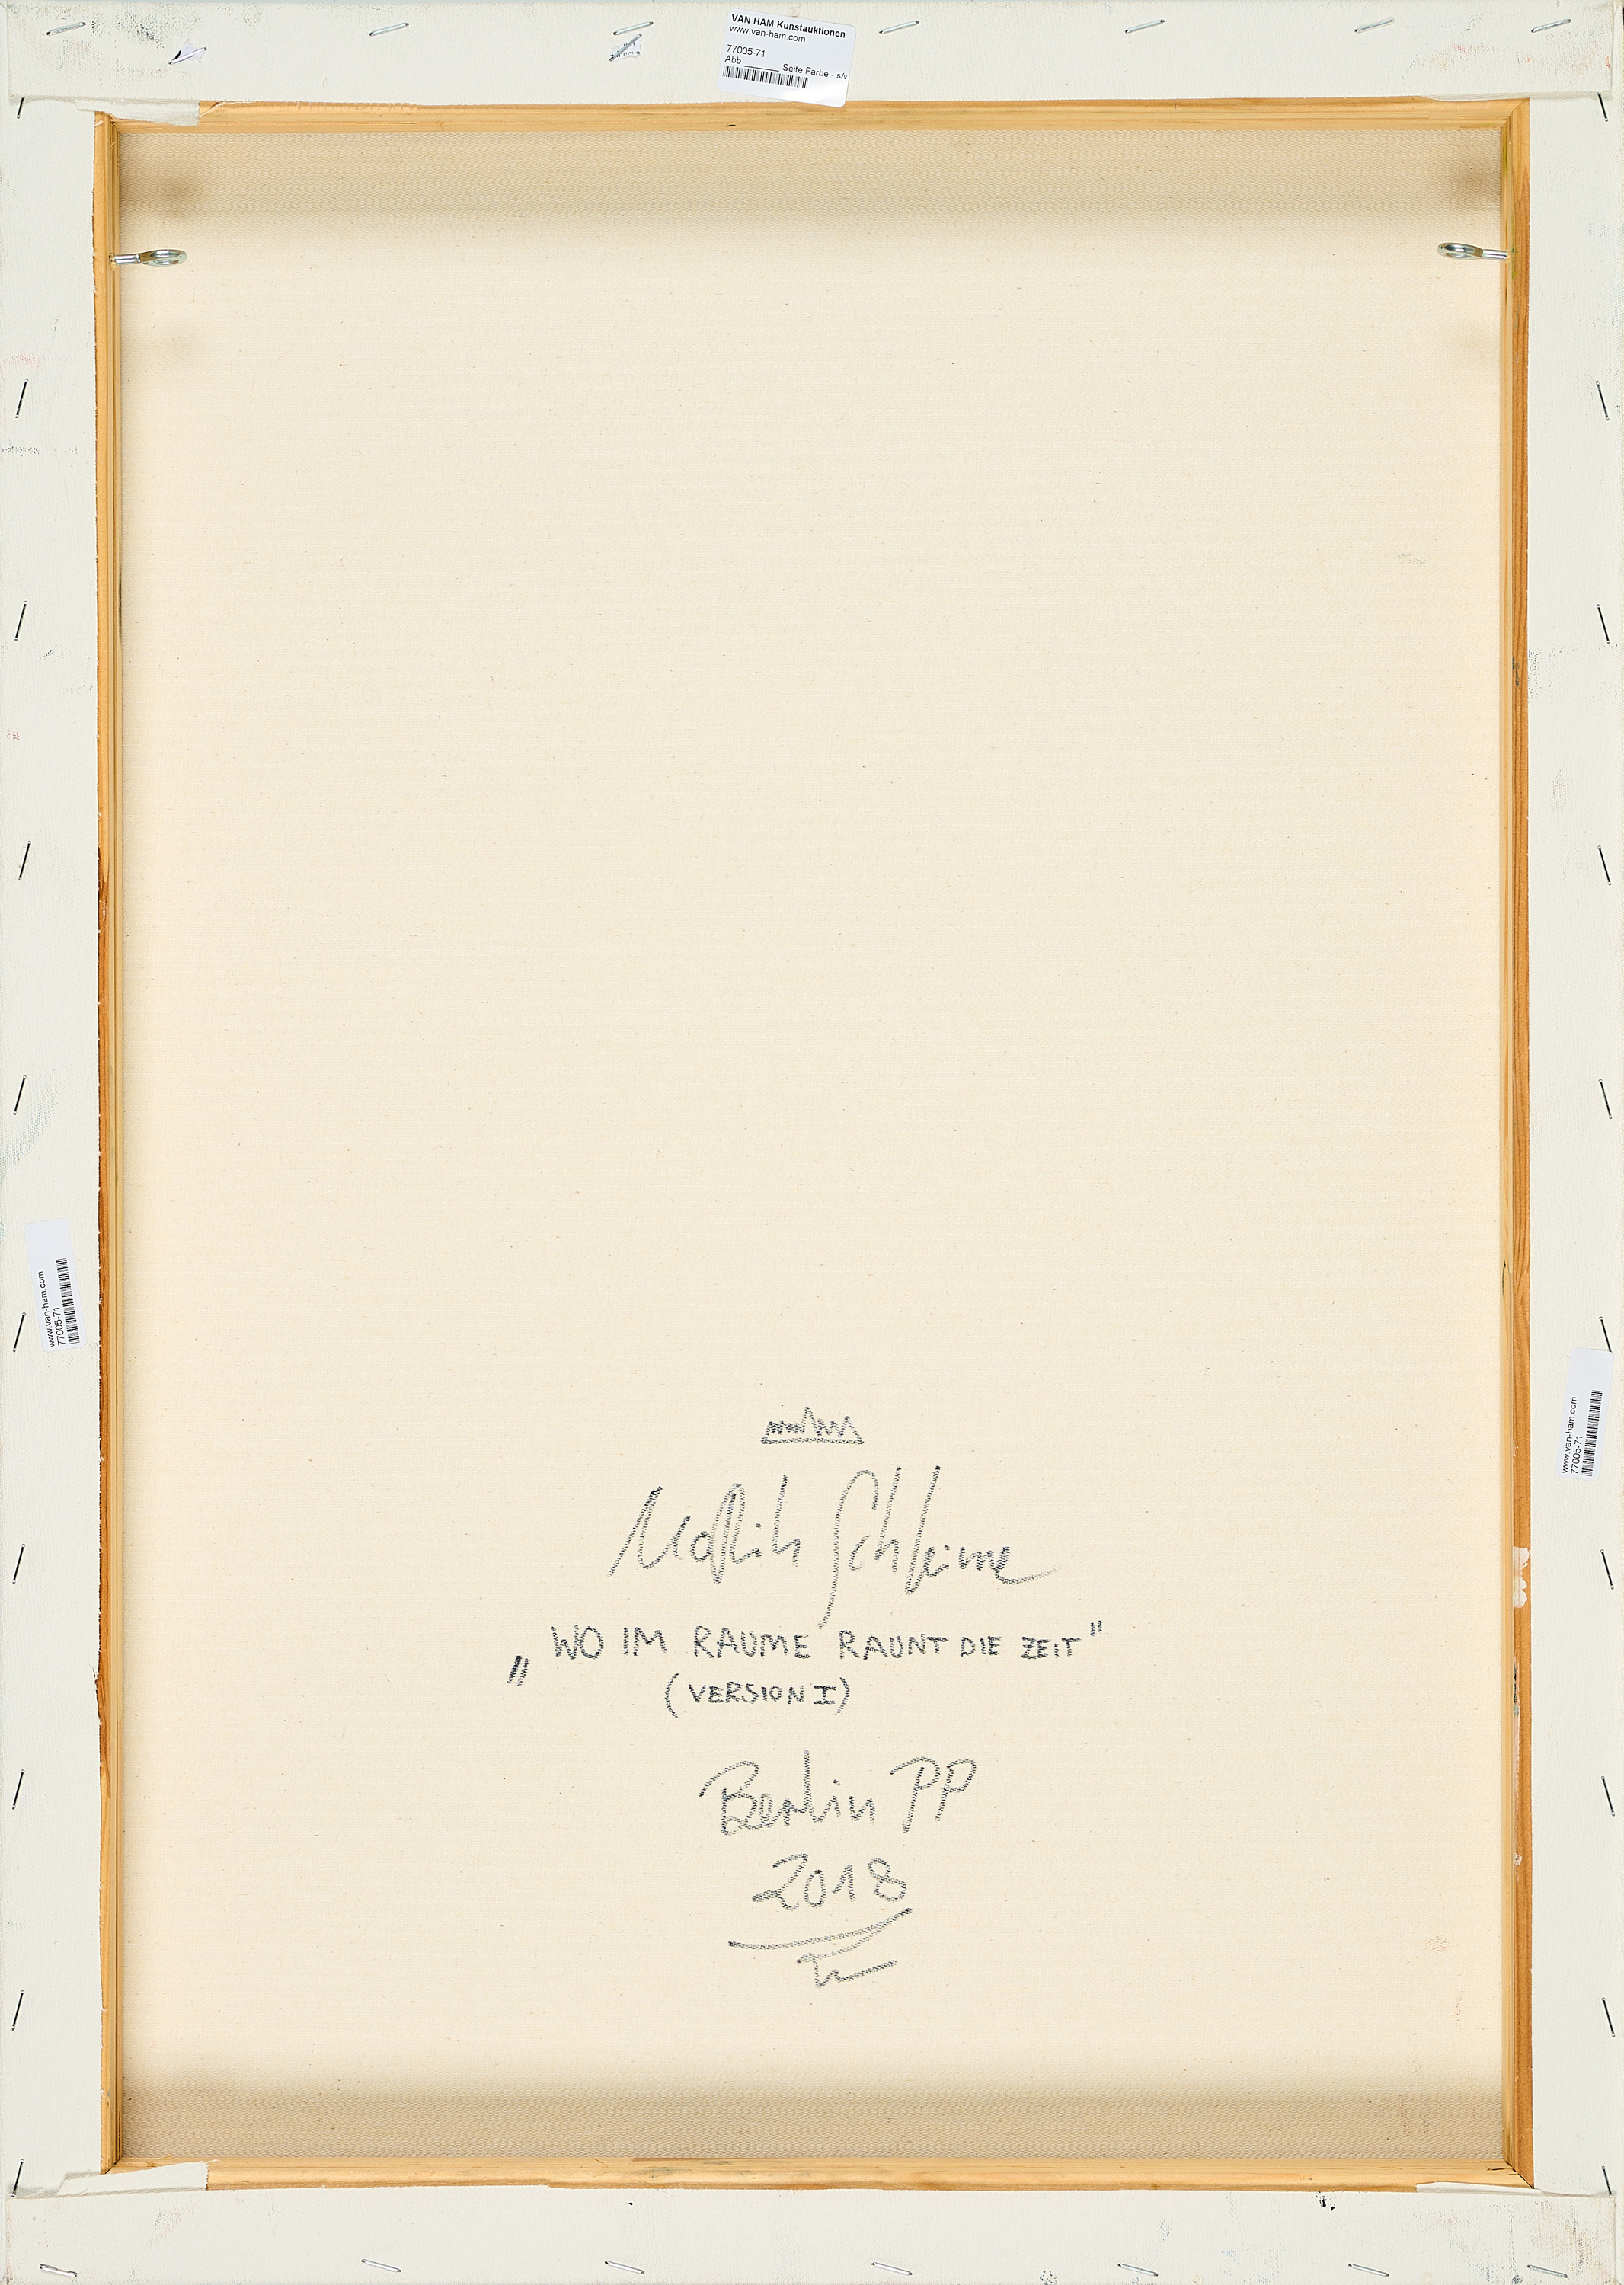 VAN HAM Kunstauktionen
www.van-ham.com
77005-71
Abb ______ Seite Farbe - s/w
www.van-ham.com
77005-71
www.van-ham.com
77005-71
Moritz Schleime
„WO IM RAUME RAUNT DIE ZEIT"
(VERSION I)
Berlin PP
2018